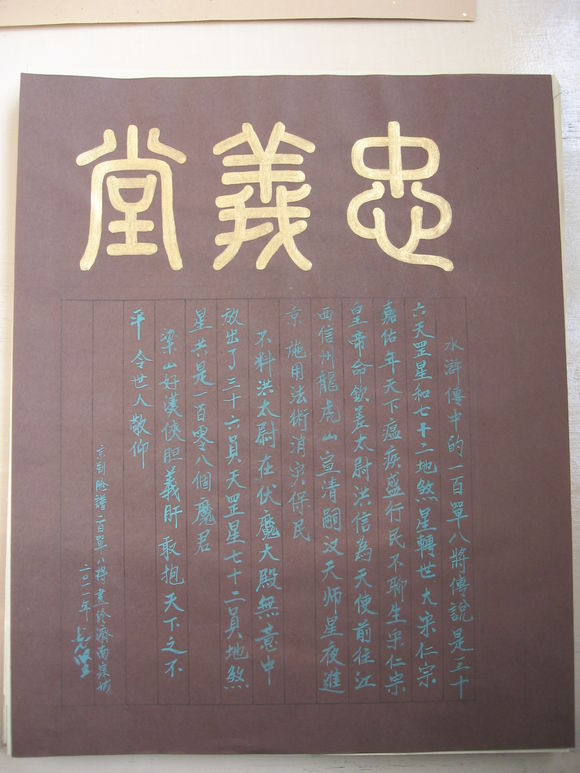 忠義堂
水滸傳中的一百單八將傳說是三十
六天罡星和七十二地煞星轉世大宋仁宗
嘉佑年天下瘟疾盛行民不聊生宋仁宗
皇帝命欽差太尉洪信為天使前往江
西信州龍虎山宣清嗣汉天师星夜進
京 施用法術消灾保民
不料洪太尉在伏魔大殿無意中
放出了三十六員天罡星七十二員地煞
星共是一百零八個魔君
梁山好漢俠胆義肝 敢抱天下之不
平 令世人敬仰
京剧臉譜一百單八將畫於濟南泉城
二〇一一年